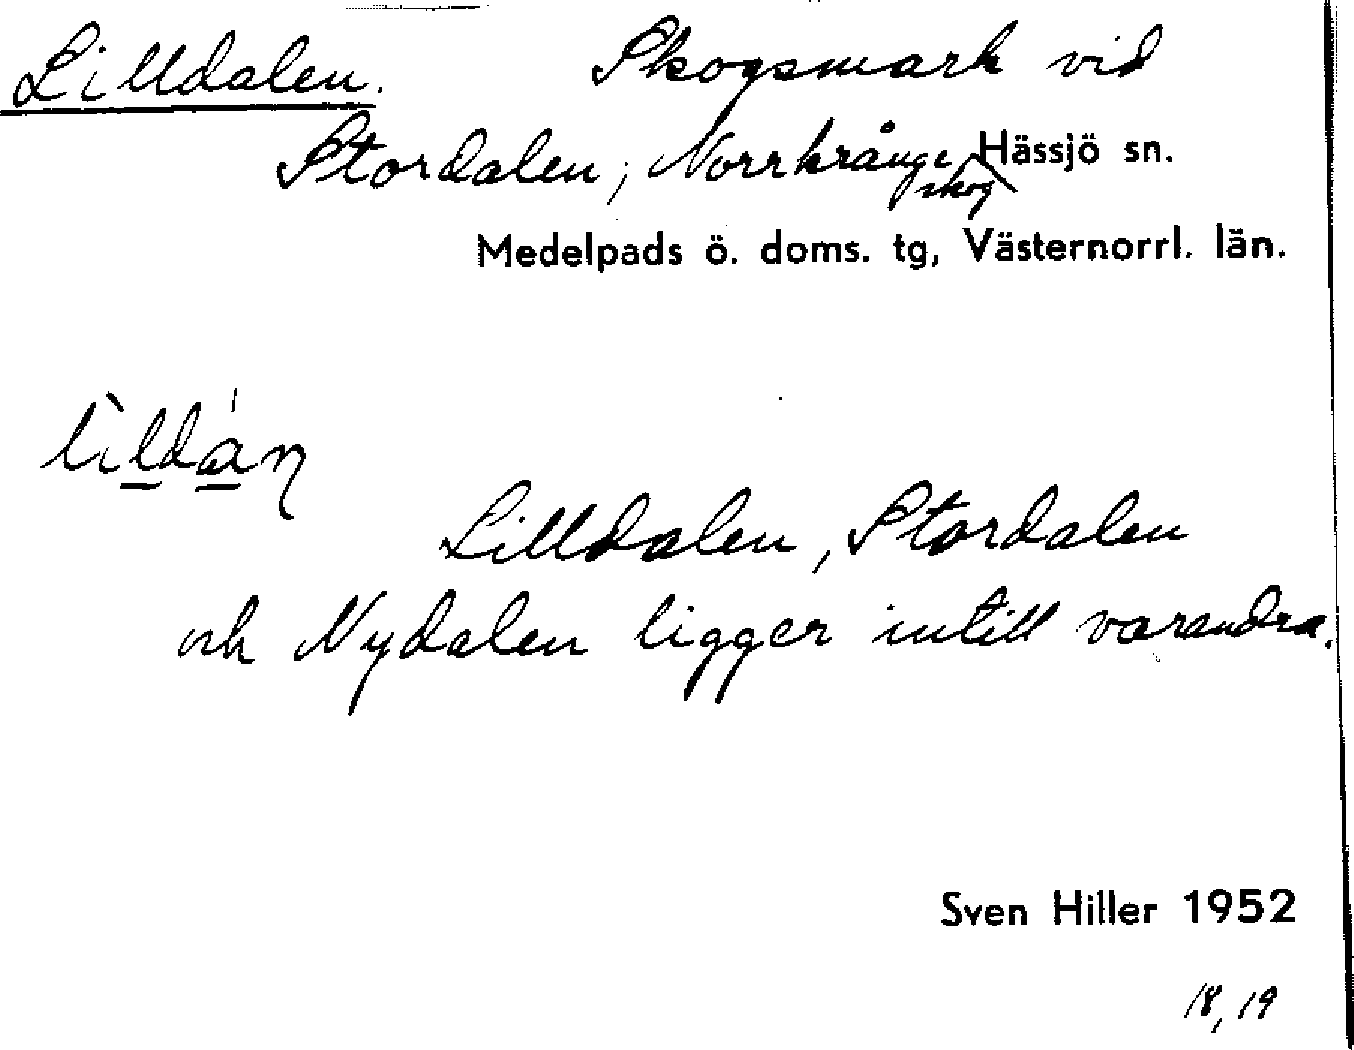 Lilldalen. Skogsmark vid
Stordalen; Norrkrånge skog Hässjö sn.
Medelpads ö. doms. tg, Västernorrl. län.
Lilldalen, Stordalen
och Nydalen ligger intill varandra.
Sven Hiller 1952
18, 19